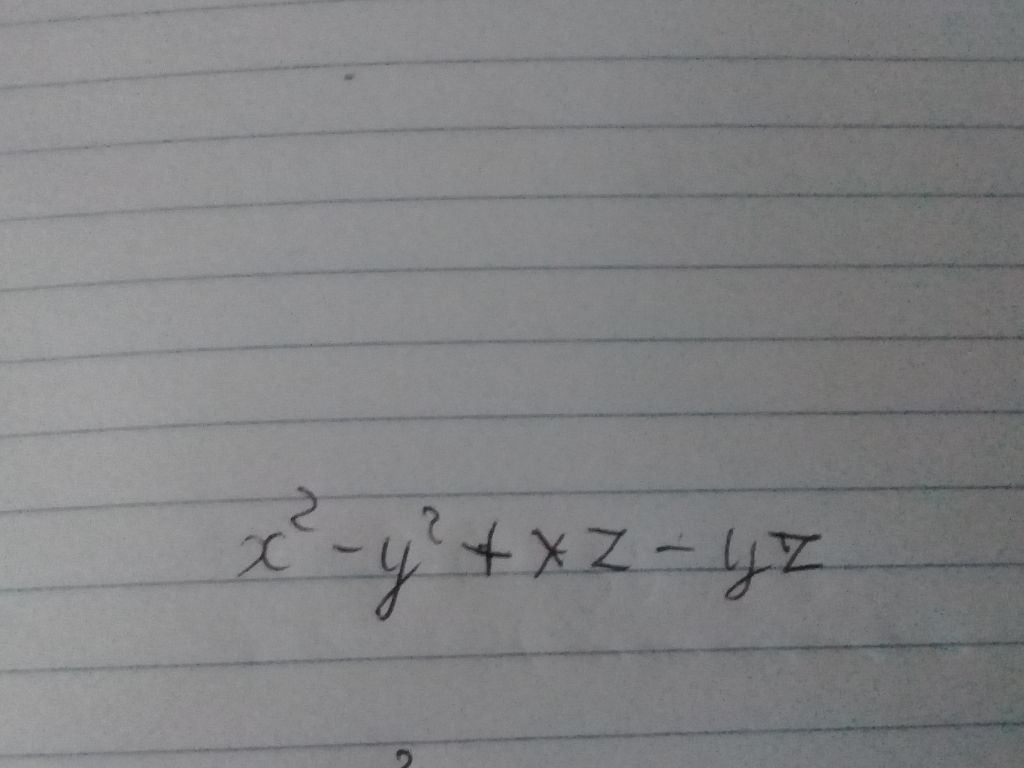 x² - y² + xz - yz